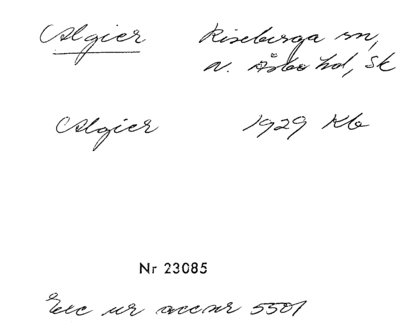 Algier Riseberga sn,
N. Åsbo hd, Sk
Algier 1929 Kb
Nr 23085
Exc ur accnr 5501